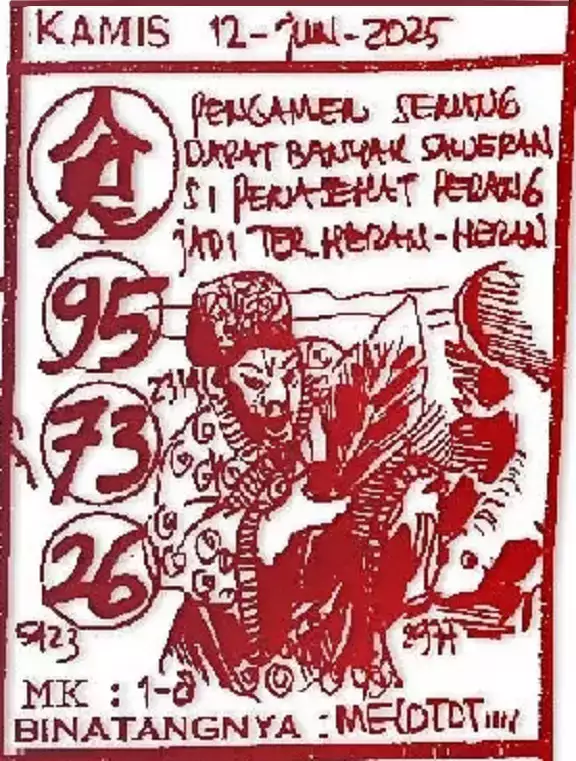 KAMIS 12-JUN-2025
PENGAMEN SERING
DAPAT BANYAK SAWERAN
SI PENASEHAT PERANG
JADI TERHERAN-HERAN
95
73
26
5123
MK : 1-8
BINATANGNYA : MELOTOT